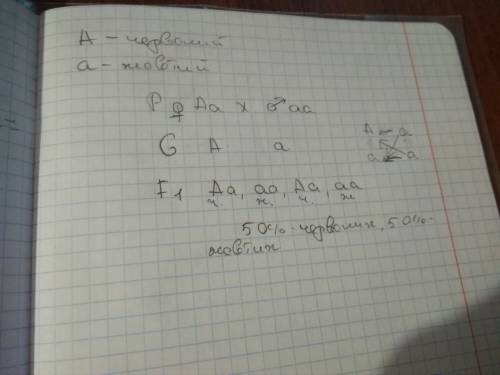 A – червоний
a – жовтий
P ♀ Aa x ♂ aa
G A a
A a
a a
F1 Aa, aa, Aa, aa
ч. ж. ч. ж
50% червоних, 50%
жовтих